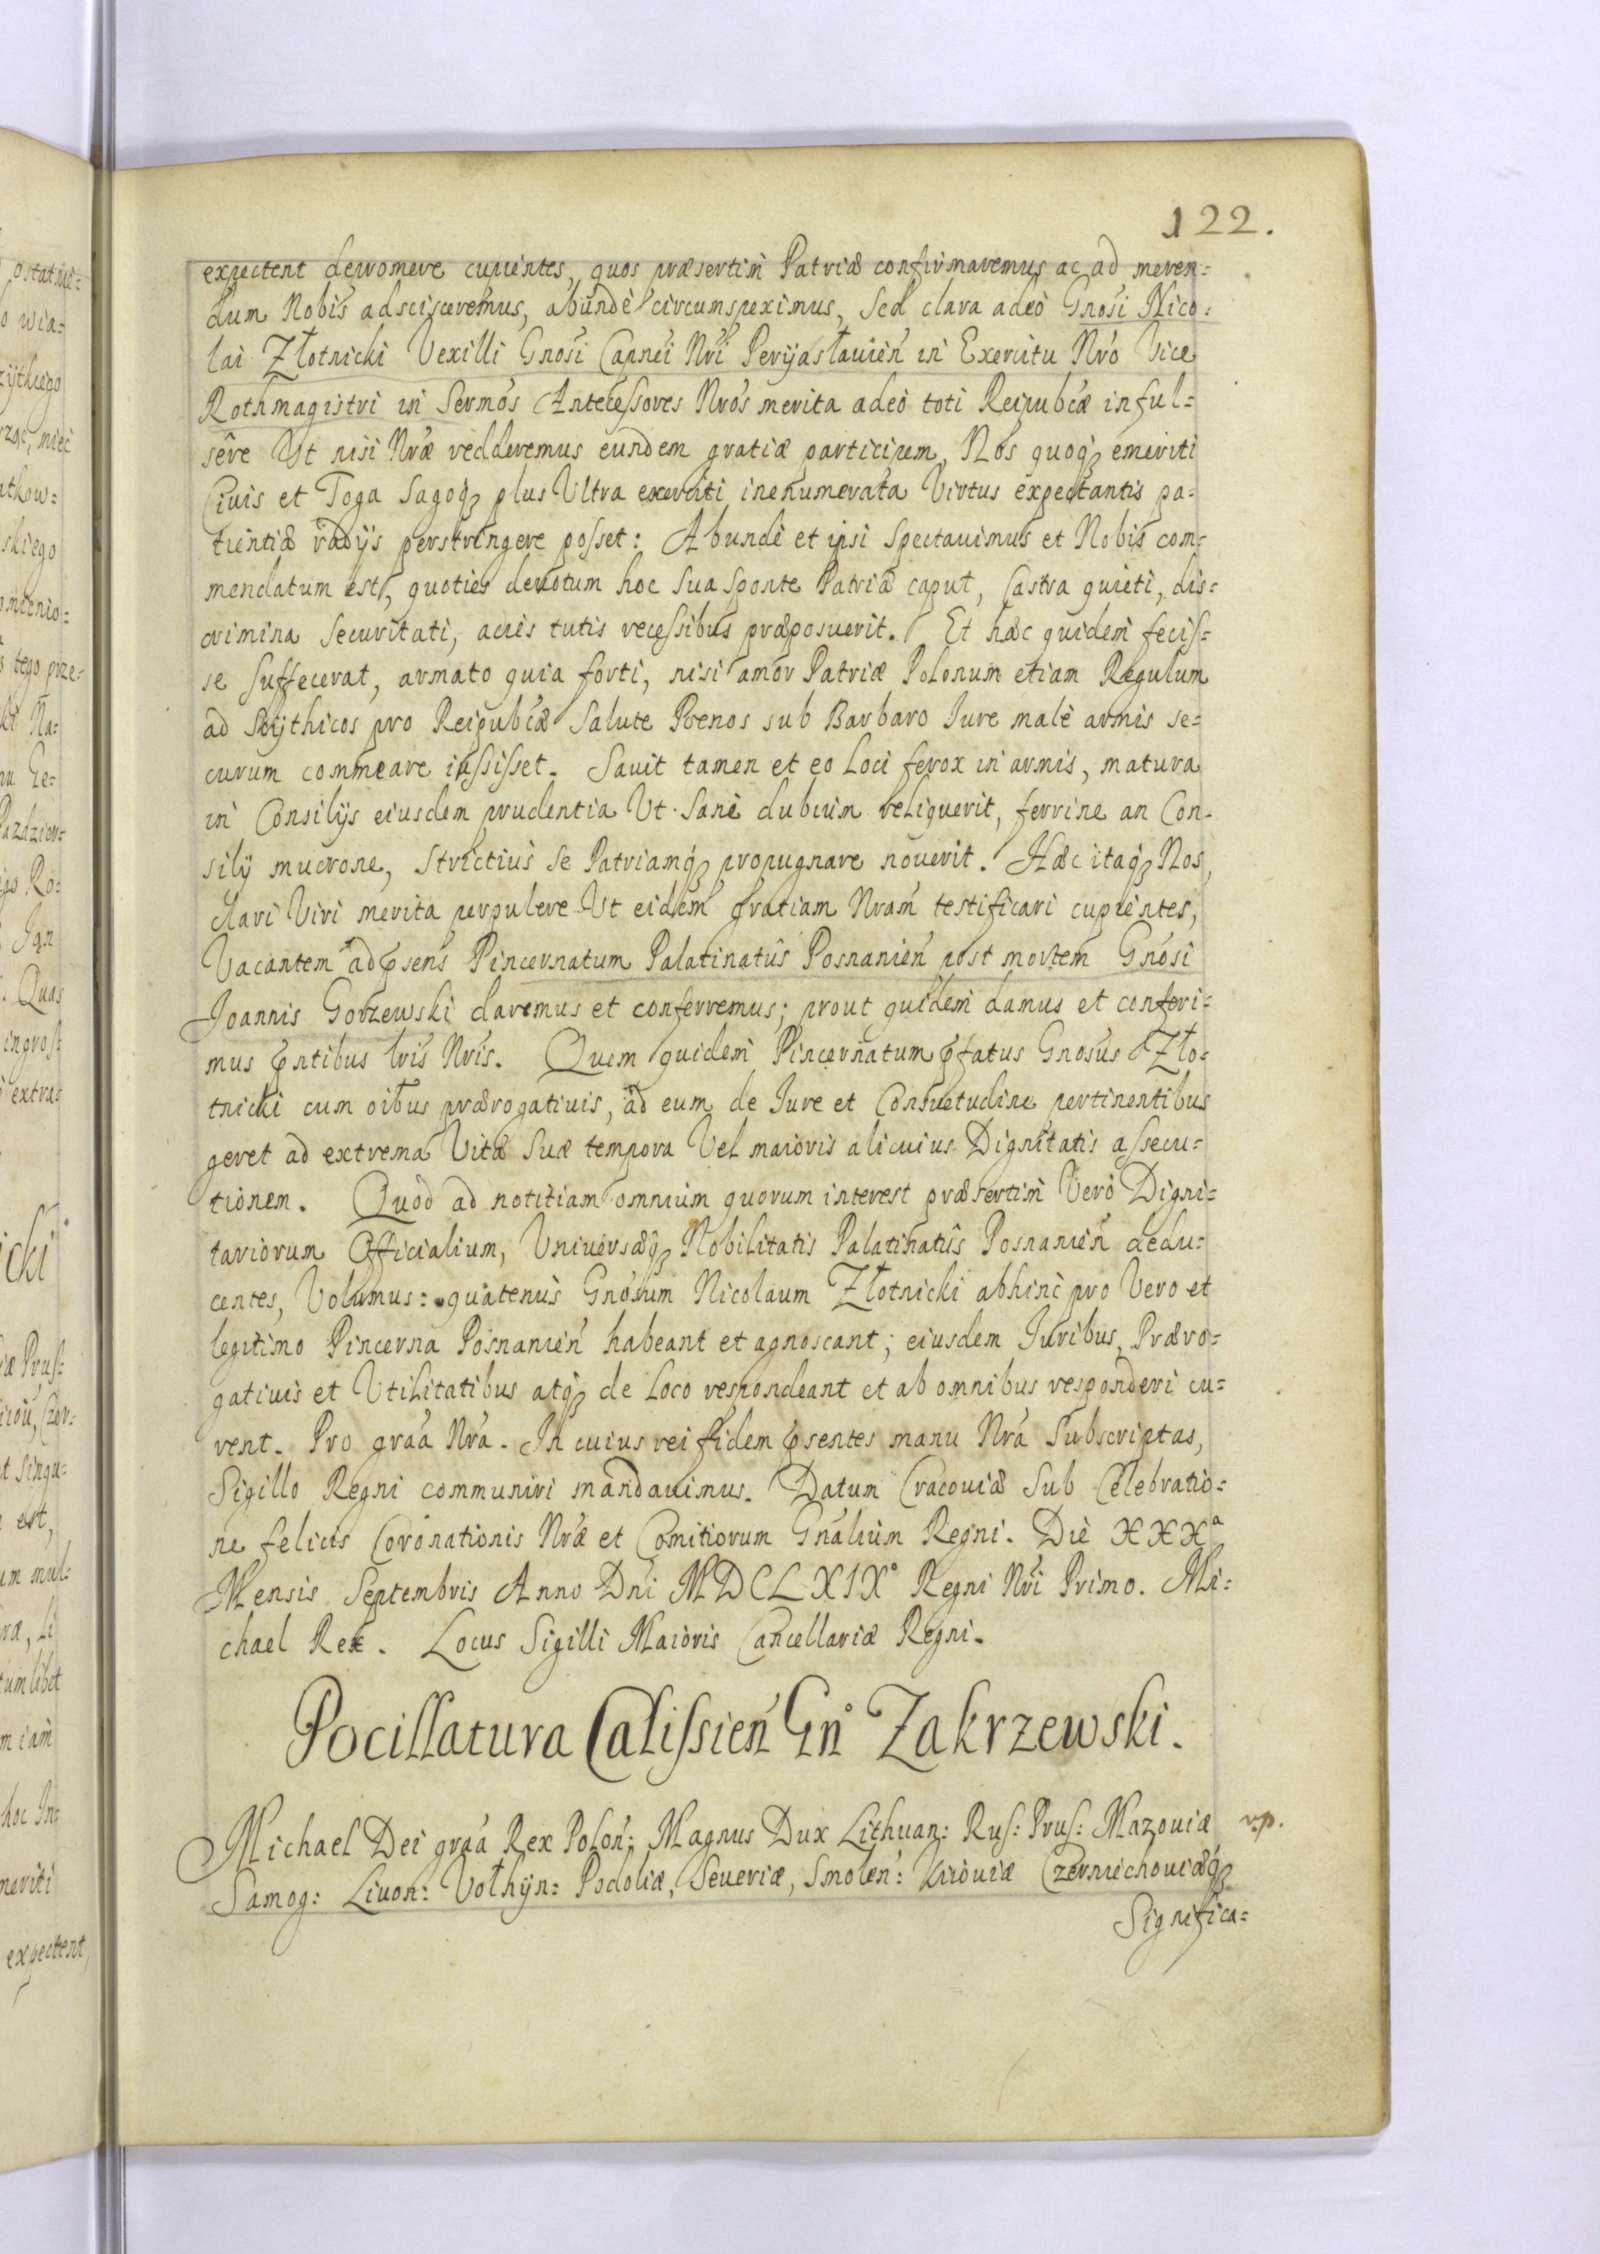 122.
expectent depromere cupientes, quos præsertim̃ Patriæ confirmaremus ac ad meren=
dum Nobis adscisceremus, abundè circumspeximus, Sed clara adeò Gnosi Nico=
lai Złotnicki Vexilli Gnosi Capnei Nri Perijasłauień in Exercitu Nro Vice
Rothmagistri in Sermos Antecessores Nros merita adeò toti Reipubcæ inful=
sêre Ut nisi Nræ redderemus eundem gratiæ participem, Nos quoqꝫ emeriti
Ciuis et Toga Sagoqꝫ plus Ultra exerciti inenumerata Virtus expectantis pa=
tientiæ radijs perstringere posset: Abundè et ipsi Spectauimus et Nobis com=
mendatum est, quoties deuotum hoc Sua sponte Patriæ caput, Castra quieti, dis=
crimina Securitati, acies tutis recessibus præposuerit. Et hæc quidem̃ fecis=
se suffecerat, armato quia forti, nisi amor Patriæ Polonum etiam Regulum
ad Scythicos pro Reipubcæ Salute Poenos sub Barbaro Iure malè armis se=
curum commeare iussisset. Sauit tamen et eo Loci ferox in armis, matura
in Consilijs eiusdem prudentia Ut Sanè dubium reliquerit, ferrine an Con=
silij mucrone, Strictius se Patriamqꝫ propugnare nouerit. Hæc itaqꝫ Nos,
clari Viri merita perpulere Ut eidem gratiam Nram testificari cupientes,
Vacantem ad ꝓsens Pincernatum Palatinatûs Posnanień post mortem Gnosi
Joannis Gorzewski daremus et conferremus; prout quidem̃ damus et conferi=
mus ꝓntibus lris Nris. Quem quidem̃ Pincernatum ꝓfatus Gnosus Zło=
tnicki cum oibus prærogatiuis, ad eum de Iure et Consuetudine pertinentibus
geret ad extrema Vitæ Suæ tempora Vel maioris alicuius Dignitatis assecu=
tionem. Quod ad notitiam omnium quorum interest præsertim̃ Verò Digni=
tariorum Officialium, Uniuersæqꝫ Nobilitatis Palatinatûs Posnanień dedu=
centes, Volumus: quatenùs Gnosum Nicolaum Złotnicki abhinc pro Vero et
legitimo Pincerna Posnanień habeant et agnoscant; eiusdem Juribus, Præro=
gatiuis et Utilitatibus atqꝫ de Loco respondeant et ab omnibus responderi cu=
rent. Pro graa Nra. In cuius rei fidem ꝓsentes manu Nra Subscriptas,
Sigillo Regni communiri mandauimus. Datum Cracouiæ Sub Celebratio=
ne felicis Coronationis Nræ et Comitiorum Gnalium Regni. Die XXXᵃ
Mensis Septembris Anno Dni MDCLXIX° Regni Nri Primo. Mi=
chael Rex. Locus Sigilli Maioris Cancellariæ Regni.
Pocillatura Calissień Gn° Zakrzewski.
Michael Dei graa Rex Poloń: Magnus Dux Lithuan: Rus: Prus: Mazouiæ
Samog: Liuon: Vołhijn: Podoliæ, Seueriæ, Smoleń: Kiiouiæ Czerniechouiæqꝫ
Significa=